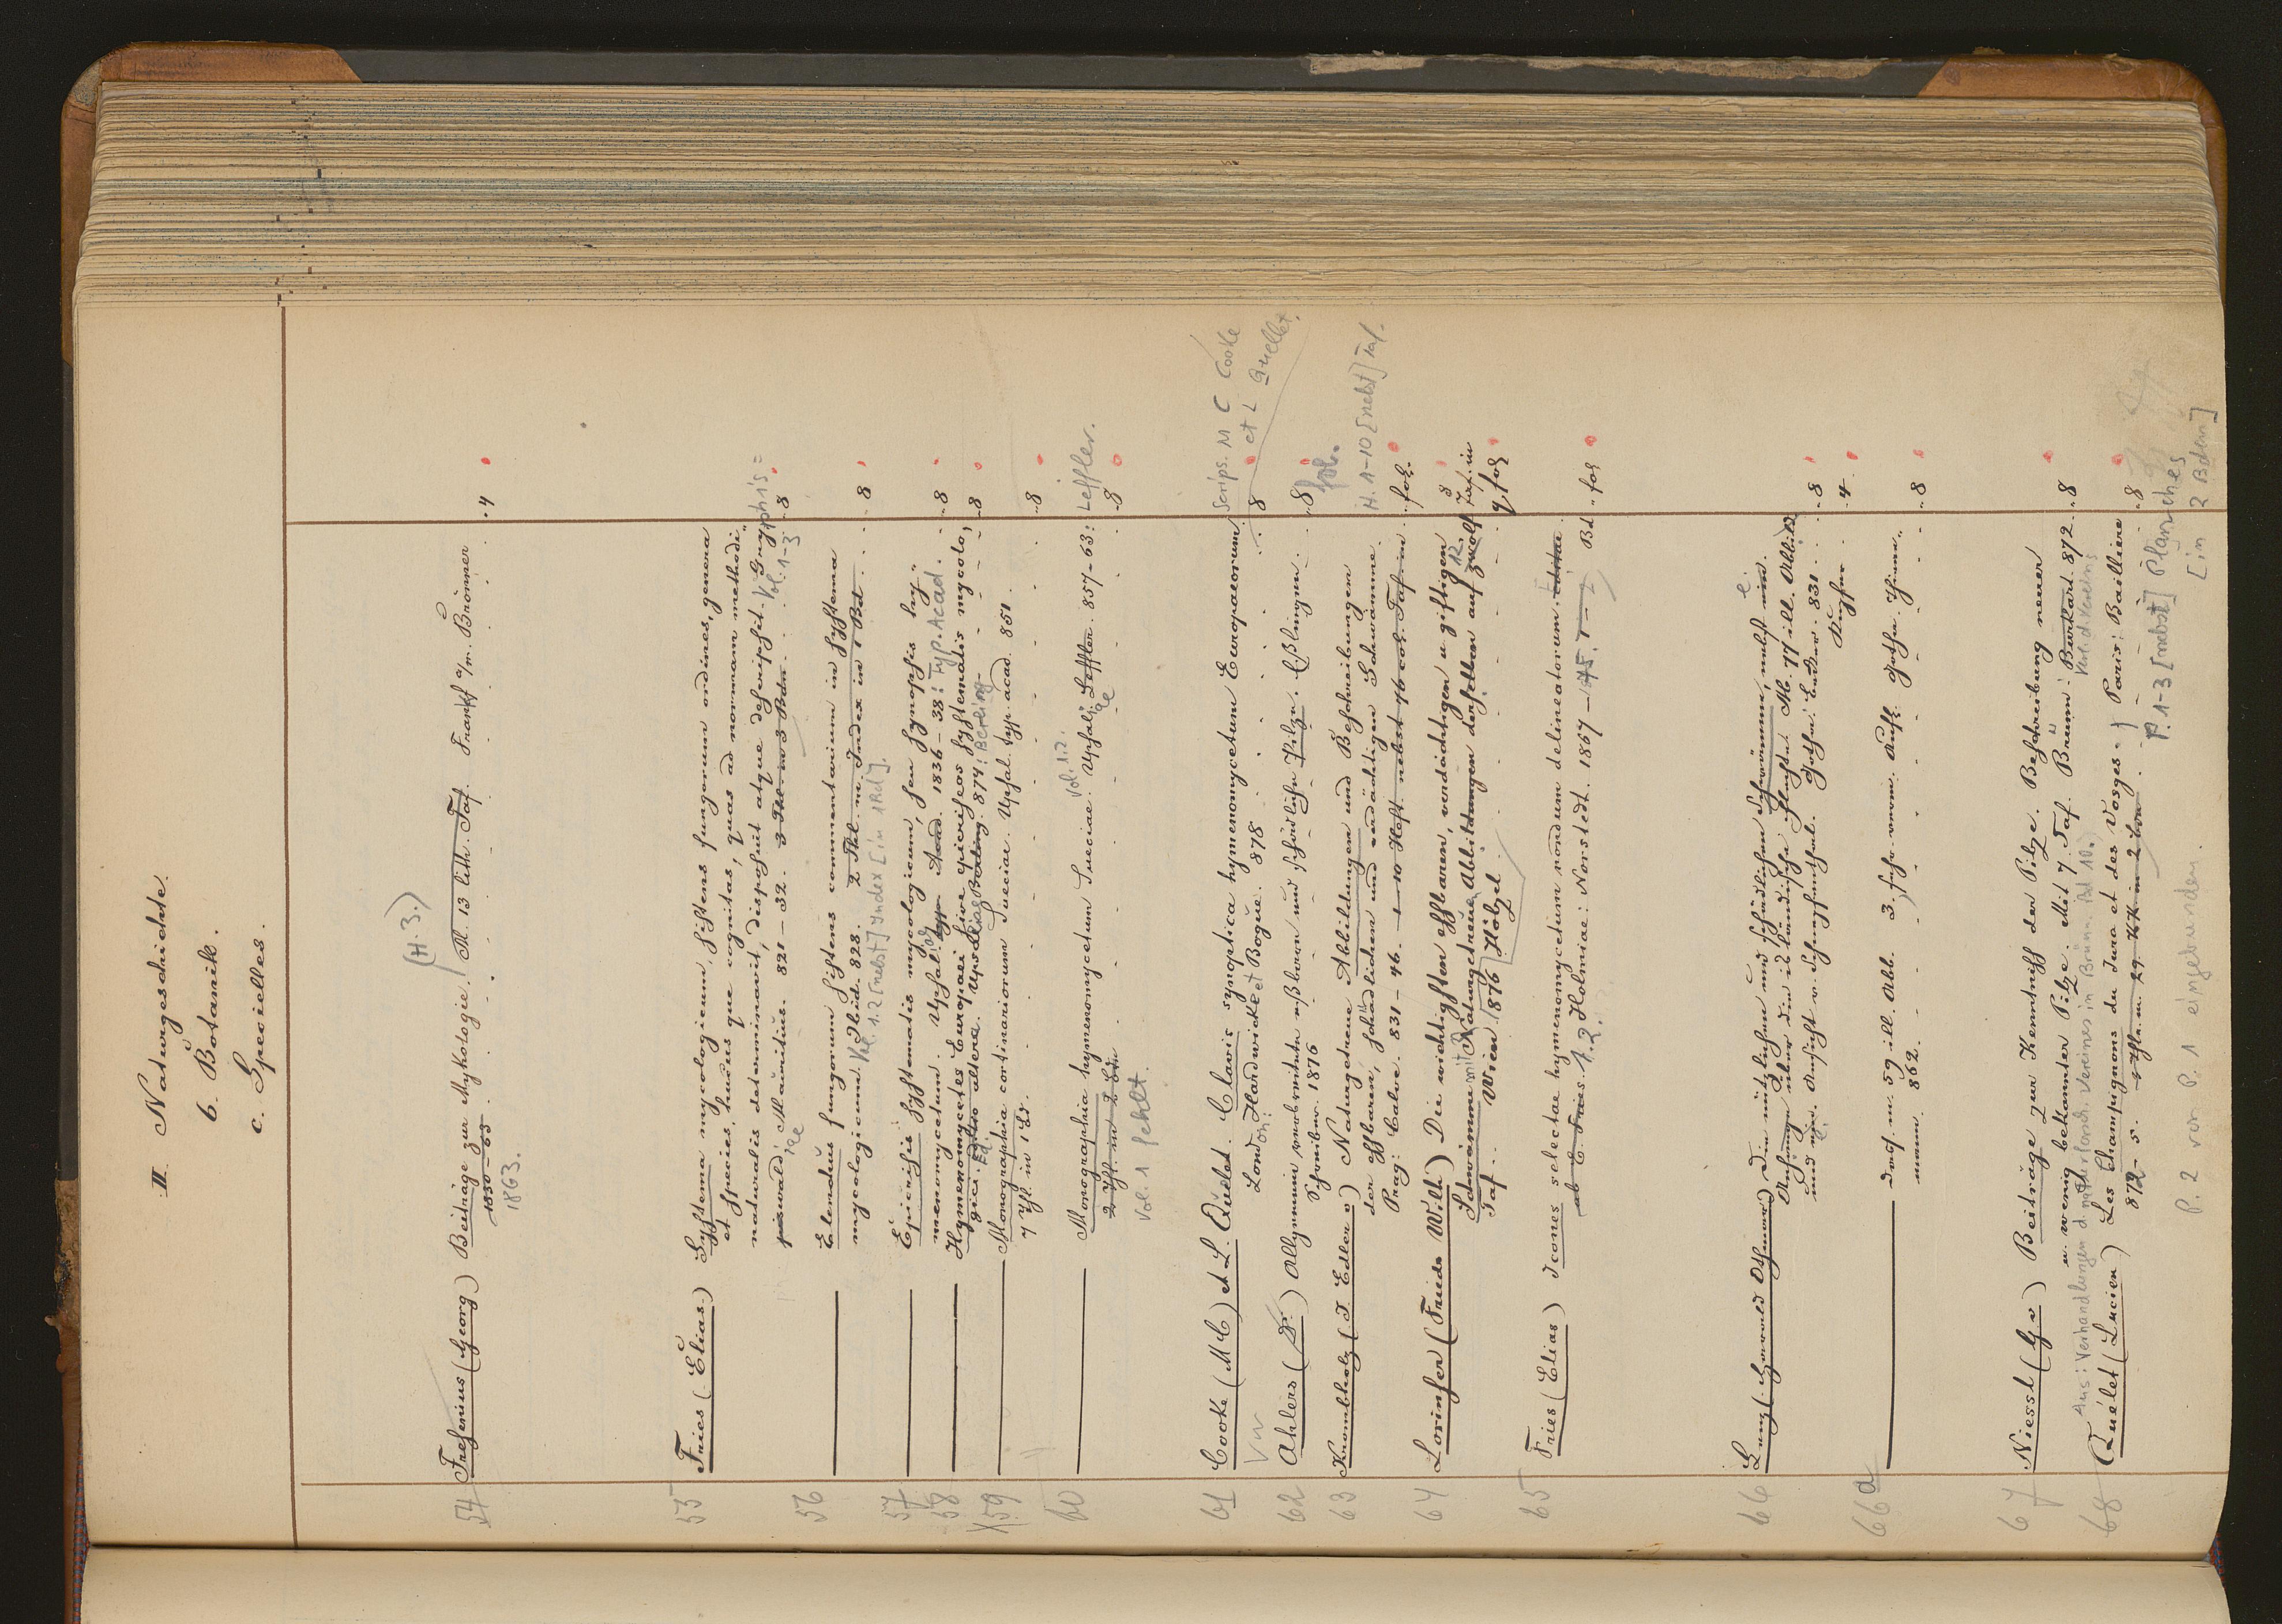 II Naturgeschichte.
b. Botanik.
c. Specielles.
(H. 3.)
54 Fresenius (Georg) Beiträge zur Mykologie. M. 13 lith. Taf. Frankf a/m. Brönner
1850–63 . 4
1863.
55 Fries (Elias) Systema mycologicum, sistens fungorum ordines, genera
et species, hucus que cognitas, quas ad normam methodi
naturalis determinavit, disposuit atque descripsit. Gryphis=
wald: Mauritius. 821–32. 3 Thl. in 3 Bdn. Vol. 1-3 8
56 ——— Elenchus fungorum sistens commentarium in Systema
mycologicum. Ibid. 828. 2 Thl. m. Index in 1 Bd. 8
Vol. 1.2 [nebst] Index [in 1 Bd].
57 ——— Epicrisis Systematis mycologici, seu Synopsis hy-
menomycetum. Upsal. typ. Acad. 1836–38: Typ. Acad. 8
58 ——— Hymenomycetes Europaei sive epicriseos systematis mycolo,
gici. Editio altera. Upsaliae Berling. 874: Berling 8
Ed.
X 59 ——— Monographia cortinariorum Sueciae. Upsal. typ. acad. 851.
7 Thl. in 1 Bd. 8
Vol. 1.2.
60 ——— Monographia hymenomycetum Sueciae. Upsaliae Leffler. 857–63: Leffler.
2 Thl. in 2 Bdn 8
Vol. 1 fehlt.
61 Cooke (M C) et L. Quélet. Clavis synoptica hymenomycetum Europaeorum Scrips. M C Cooke
London: Hardwicke et Bogue. 878 8 et L Quellet.
62 Ahlers (Dr.) Allgemein verbreitete eßbare und schädliche Pilze. Eßlingen. 8 fol.
Schreiber. 1876
63 Krombholz (J. Edler v) Naturgetreue Abbildungen und Beschreibungen H. 1-10 [nebst] Taf.
der essbaren, schädlichen und verdächtigen Schwämme.
Prag: Calve. 831–46. 1–10 Heft nebst 76 col. Taf in fol.
64 Lorinser (Friedr Wilh) Die wichtigsten essbaren, verdächtigen u. giftigen 8
Schwämme mit Naturgetreuen Abbildungen derselben auf zwölf 12. Taf. in
Taf.. Wien 1876 Hölzel. q. fol
65 Fries (Elias) Icones selectae hymenomycetum nondum delineatorum. Editae
ab E. Fries. 1.2. Holmiae: Norstedt. 1867– Bd fol
66 Lenz (Harald Othmar) Die nützlichen und schädlichen Schwämme, nebst
Anhange über die isländische Flechte. M. 77 ill. Abbild.
und e. Ansicht v. Schnepfenthal. Gotha: Becker. 831 8
Kupfer 4
66a ——— dass. m. 59 ill. Abb. 3. sehr verm. Aufl. Gotha: Thiene-
mann. 862. 8
67 Niessl (G. v) Beiträge zur Kenntniss der Pilze. Beschreibung neuer
u. wenig bekannter Pilze. Mit 7 Taf. Brünn: Burkard. 872 8
Verl. d. Vereins
Aus: Verhandlungen d naturforsch. Vereines in Brünn. Bd 10.)
68 Quélet (Lucien) Les Champignons du Jura et des Vosges. Paris: Baillière
872– 5. 8
P. 1-3 [nebst] Planches
[in 2 Bden]
P. 2 vor P. 1 eingebunden.